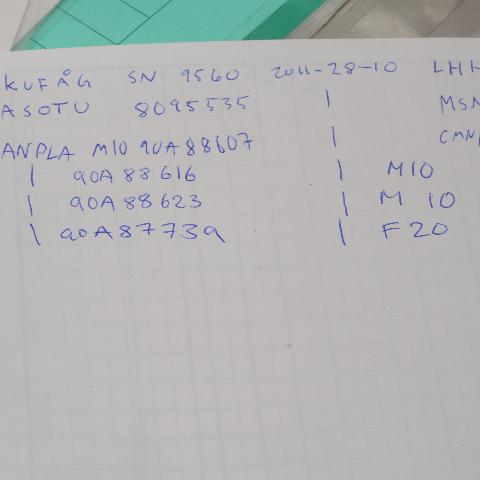 KUFÅG SN 9560 2011-28-10 LHH
ASOTU 8095535 | MSN
ANPLA M10 90A88607 | CMN
| 90A88616 | M10
| 90A88623 | M 10
| 90A87739 | F20